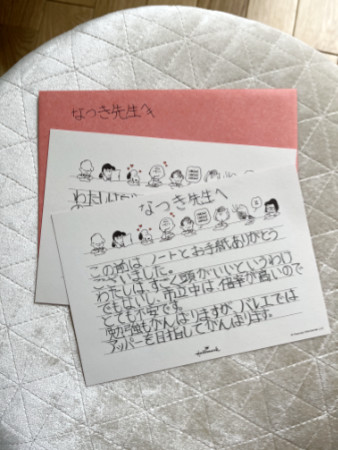 なつき先生へ
わたしは
なつき先生へ
この前はノートとお手紙ありがとう
ございました。
わたしは、すごく頭がいいというわけ
でもないし、市立中は倍率が高いので
とても不安です。
勉強もがんばりますが、バレエでは
アッパーを目指してがんばります。
Hallmark